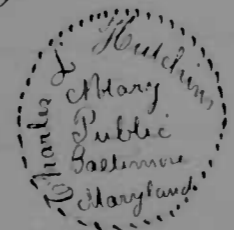 Charles L Hutchins
Notary
Public
Baltimore
Maryland